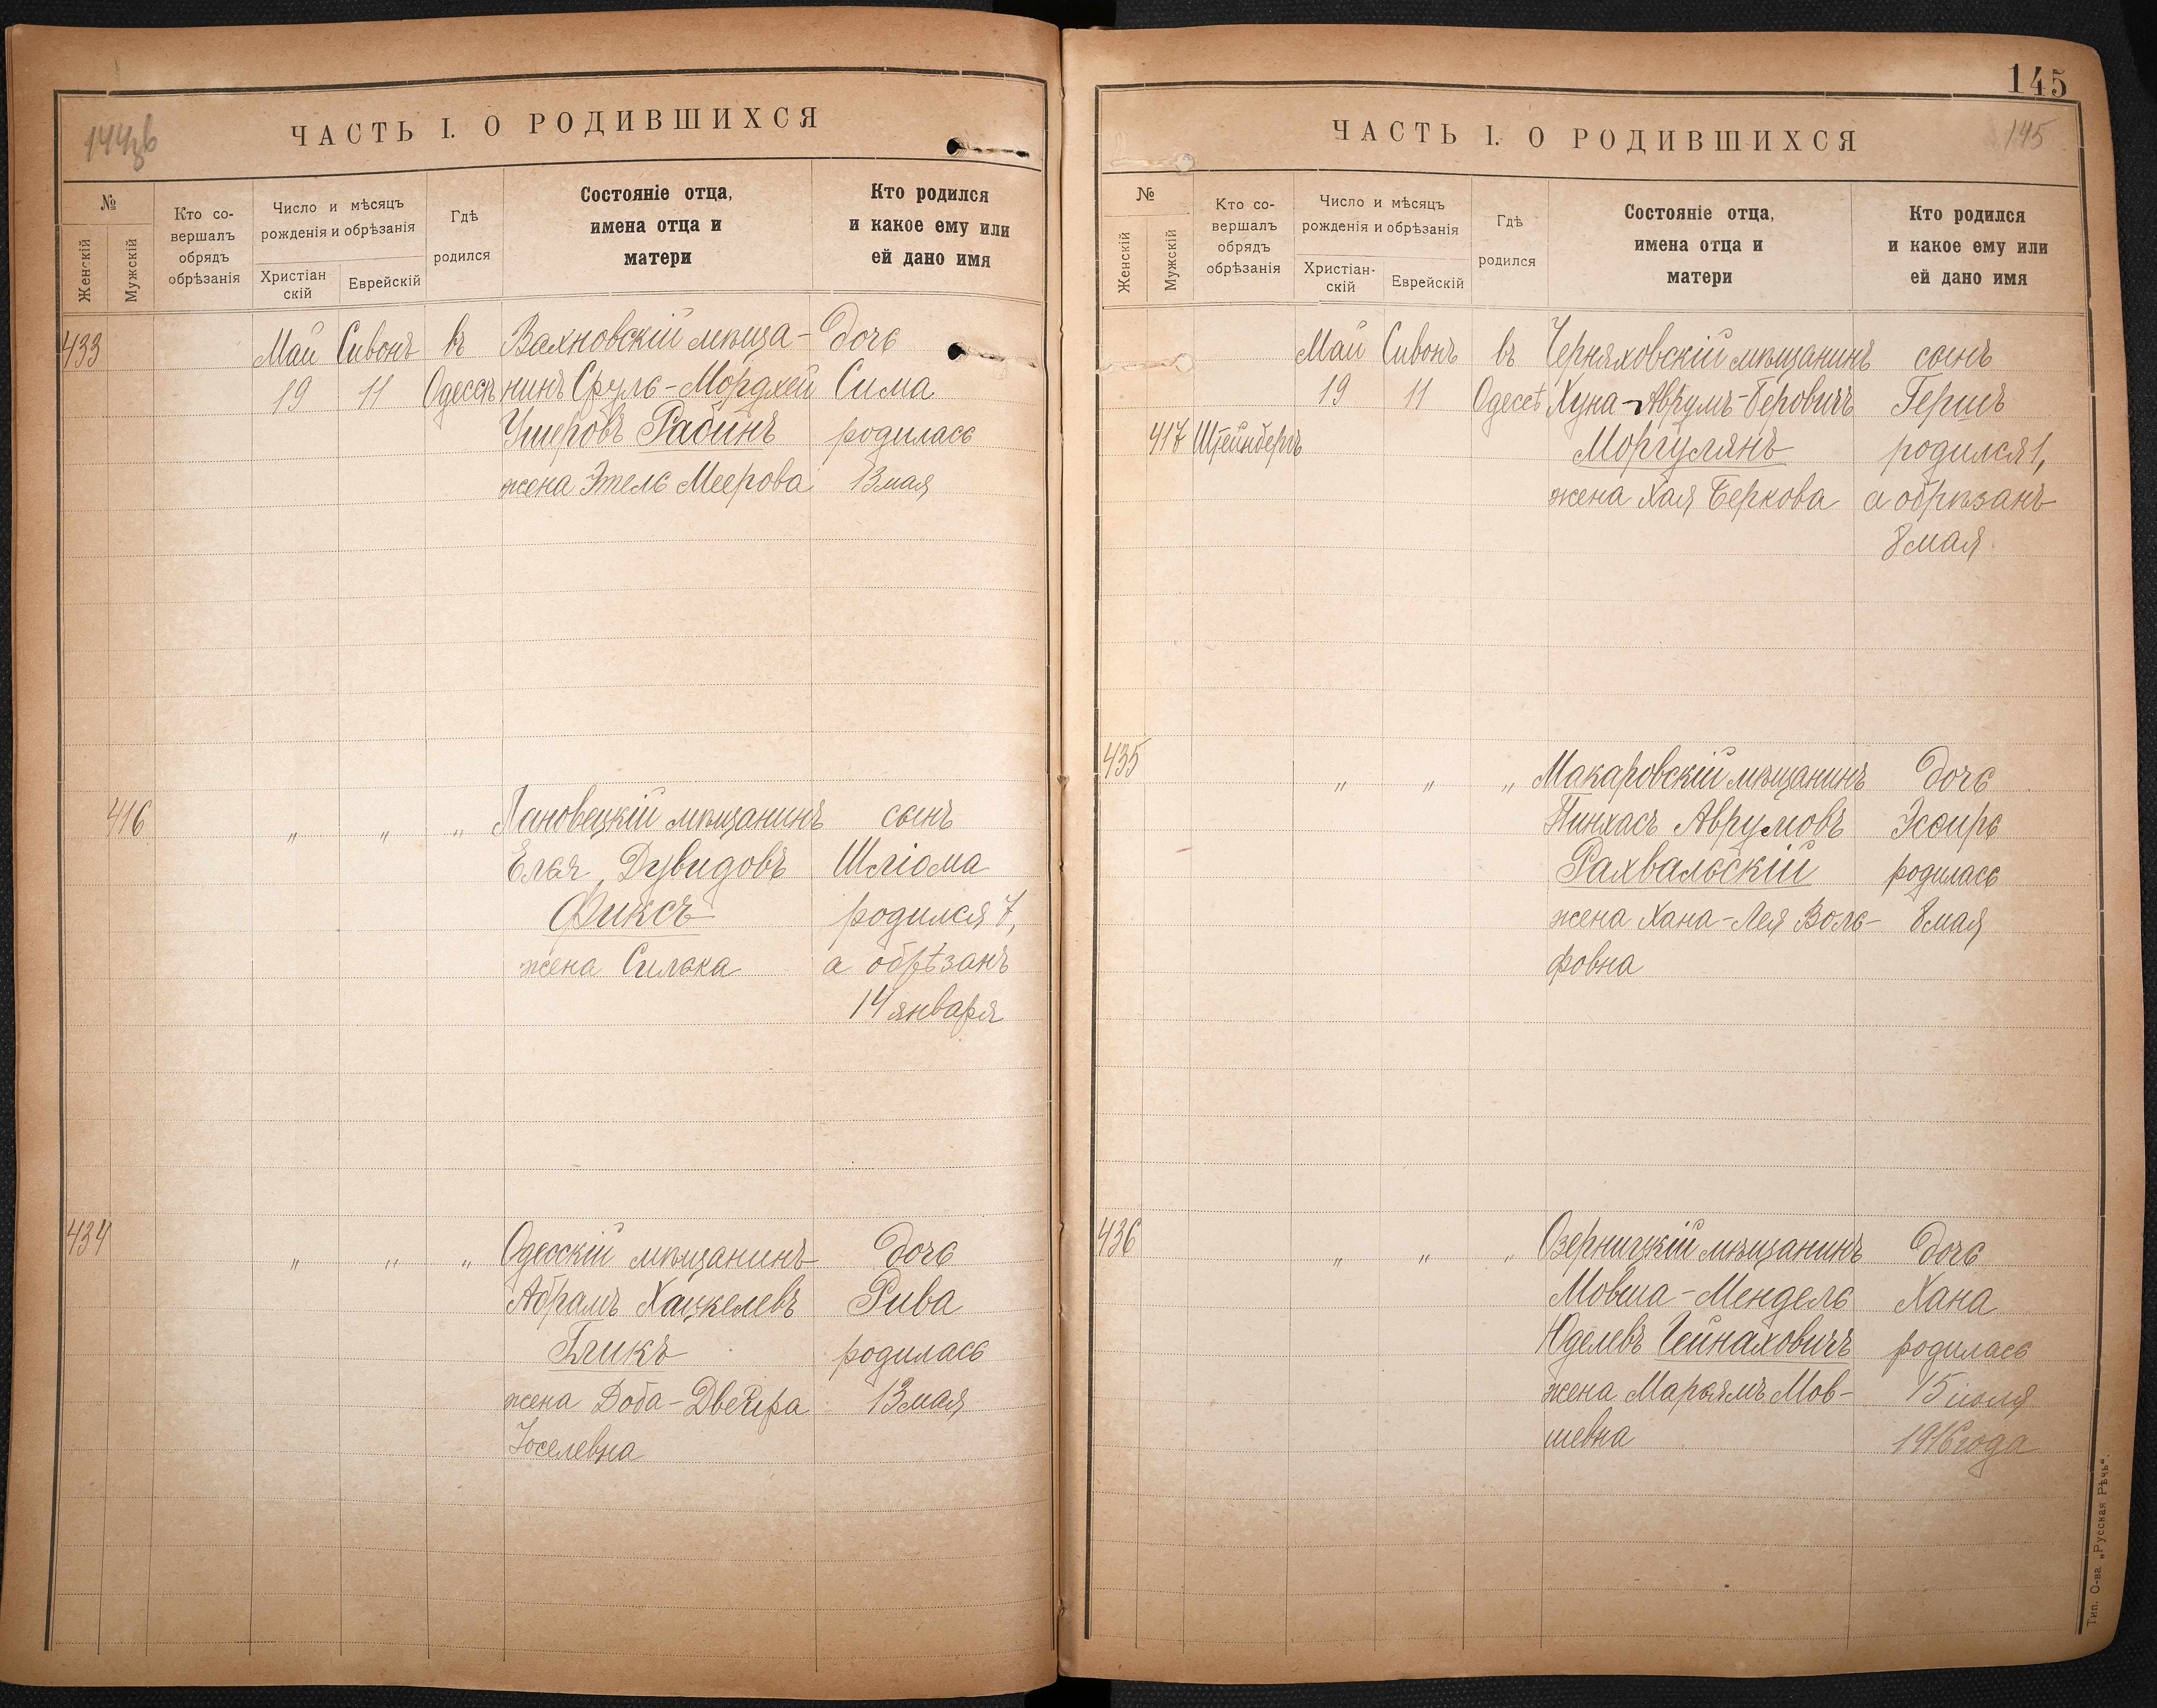 144об
ЧАСТЬ I. О РОДИВШИХСЯ
№
Женскій
Мужскій
Кто со-
вершалъ
обрядъ
обрѣзанія
Число и мѣсяцъ
рожденія и обрѣзанія
Христіан
скій
Еврейскій
Гдѣ
родился
Состояніе отца,
имена отца и
матери
Кто родился
и какое ему или
ей дано имя
433 Май Сивонъ въ Вахновскій мѣща- дочь
19 11 Одессѣ нинъ Сруль-Мордхей Сима
Ушеровъ Рабинъ родилась
жена Этель Меерова 13 мая
416 „ „ „ Лановецкій мѣщанинъ сынъ
Елья Дувидовъ Шліома
Фиксъ родился 7,
жена Силька а обрѣзанъ
14 января
434 „ „ „ Одесскій мѣщанинъ дочь
Абрамъ Хацкелевъ Рива
Бликъ родилась
жена Доба-Двейра 13 мая
Іоселевна
145
ЧАСТЬ I. О РОДИВШИХСЯ
145
№
Женскій
Мужскій
Кто со-
вершалъ
обрядъ
обрѣзанія
Число и мѣсяцъ
рожденія и обрѣзанія
Христіан-
скій
Еврейскій
Гдѣ
родился
Состояніе отца,
имена отца и
матери
Кто родился
и какое ему или
ей дано имя
Май Сивонъ въ Черняховскій мѣщанинъ сынъ
19 11 Одессѣ Хуна-Аврумъ-Беровичъ Гершъ
417 Штейнбергъ Моргулянъ родился 1,
жена Хая Беркова а обрѣзанъ
8 мая
435 „ „ „ Макаровскій мѣщанинъ дочь
Пинхасъ Аврумовъ Эсѳирь
Рахвальскій родилась
жена Хана-Лея Воль- 8 мая
фовна
436 „ „ „ Озерницкій мѣщанинъ дочь
Мовша-Мендель Хана
Юделевъ Гейнаховичъ родилась
жена Марьямъ Мов- 15 іюля
шевна 1916 года
Тип. О-ва „Русская Рѣчь“.